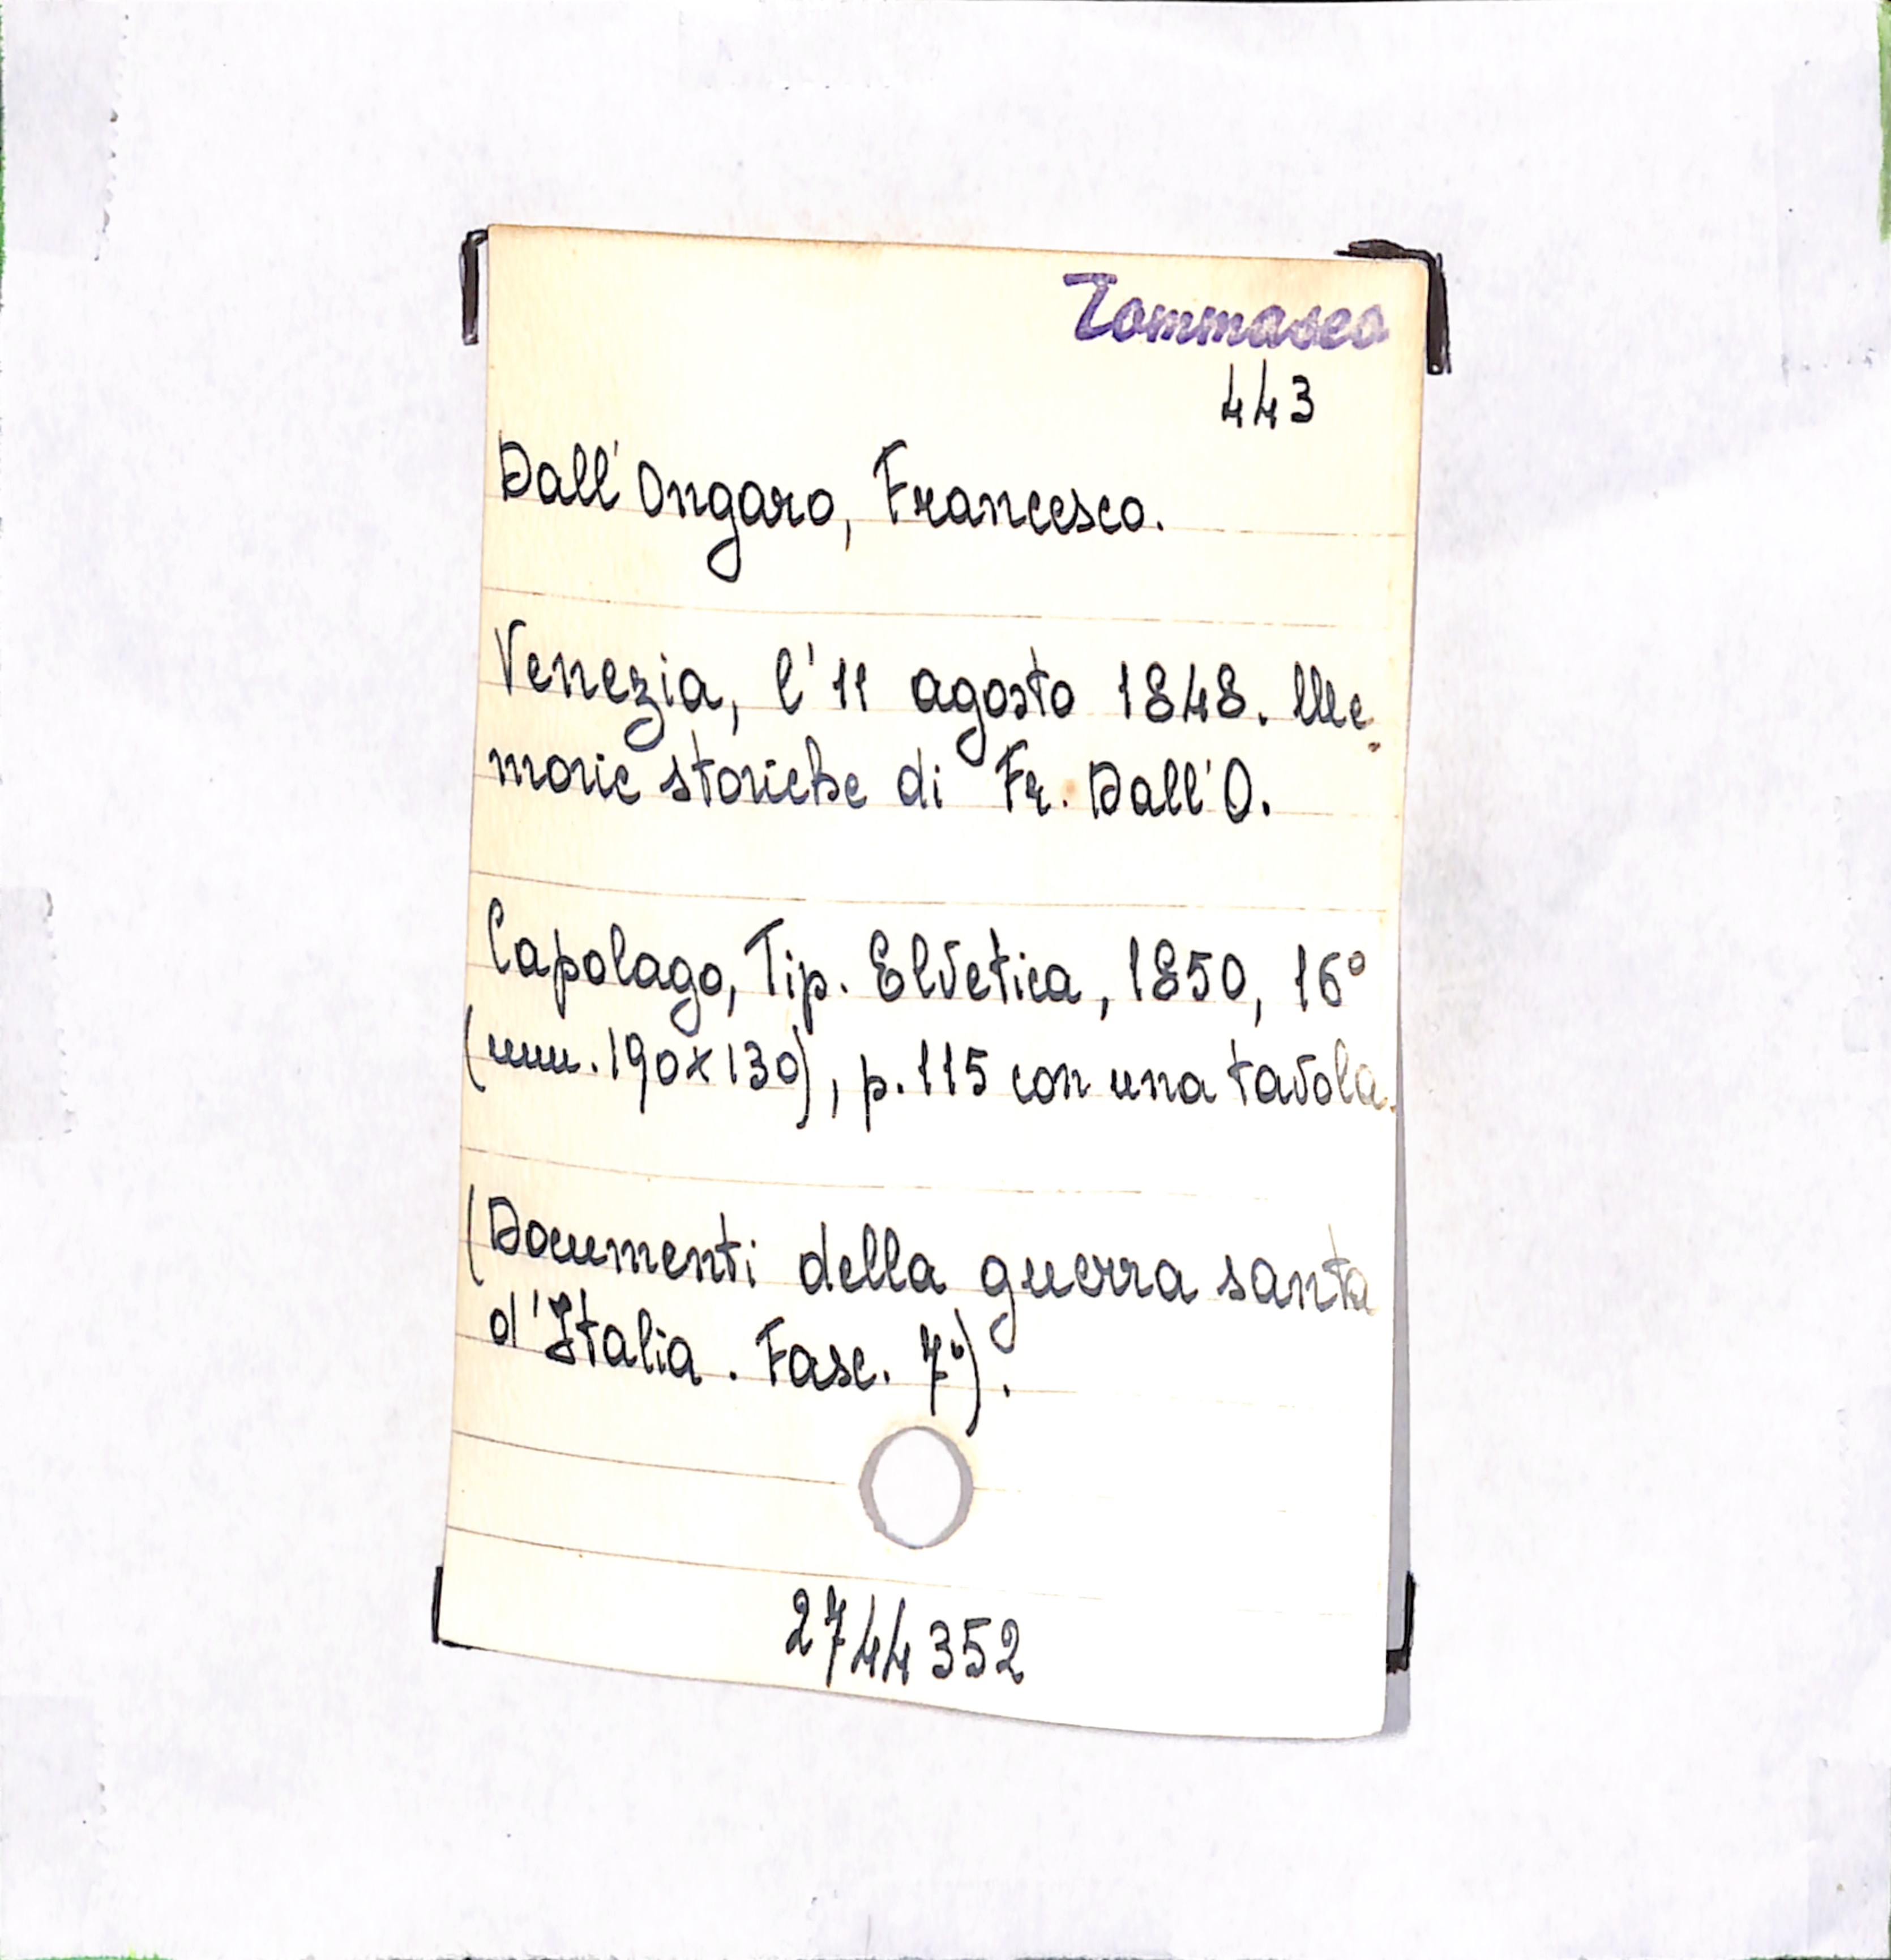 Tommaseo
443
Dall'Ongaro, Francesco.
Venezia, l'11 agosto 1848. Me
morie storiche di Fr. Dall'O.
Capolago, Tip. Elvetica, 1850, 16°
(mm. 190x130), p. 115 con una tavola.
(Documenti della guerra santa
d'Italia. Fasc. 7°).
2744352